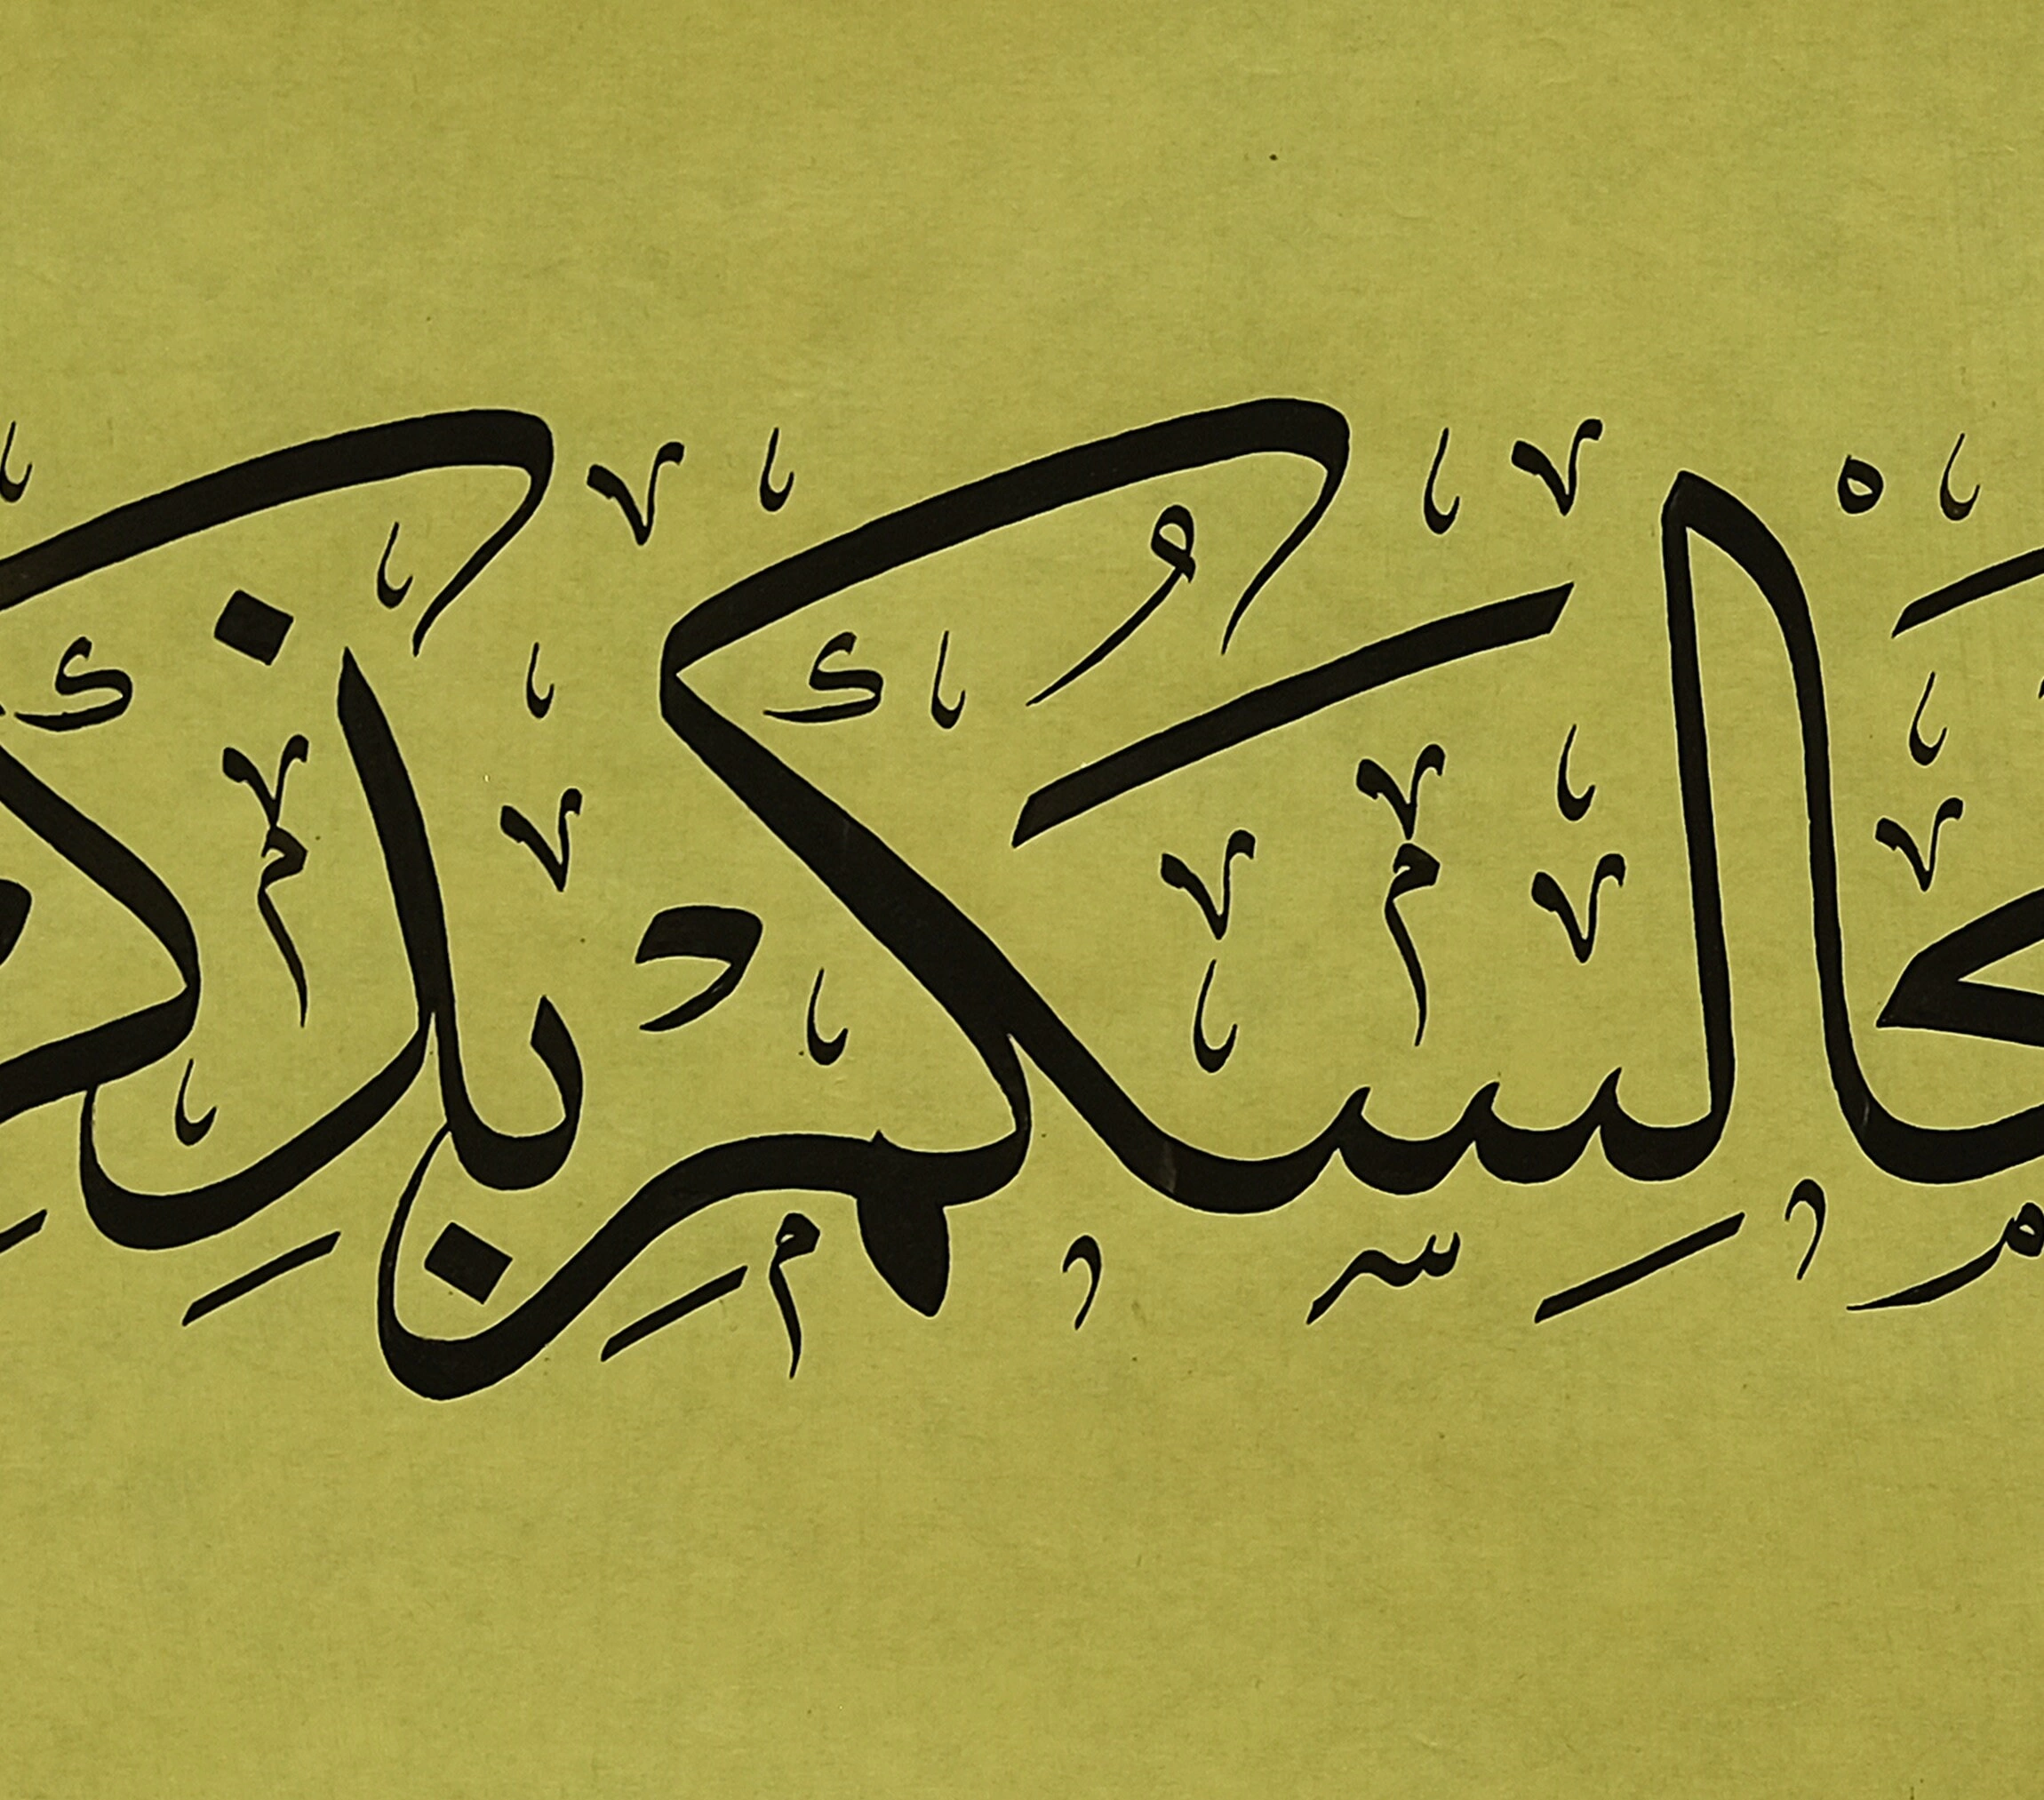 جَالِسَكُمْ بِذِكـ